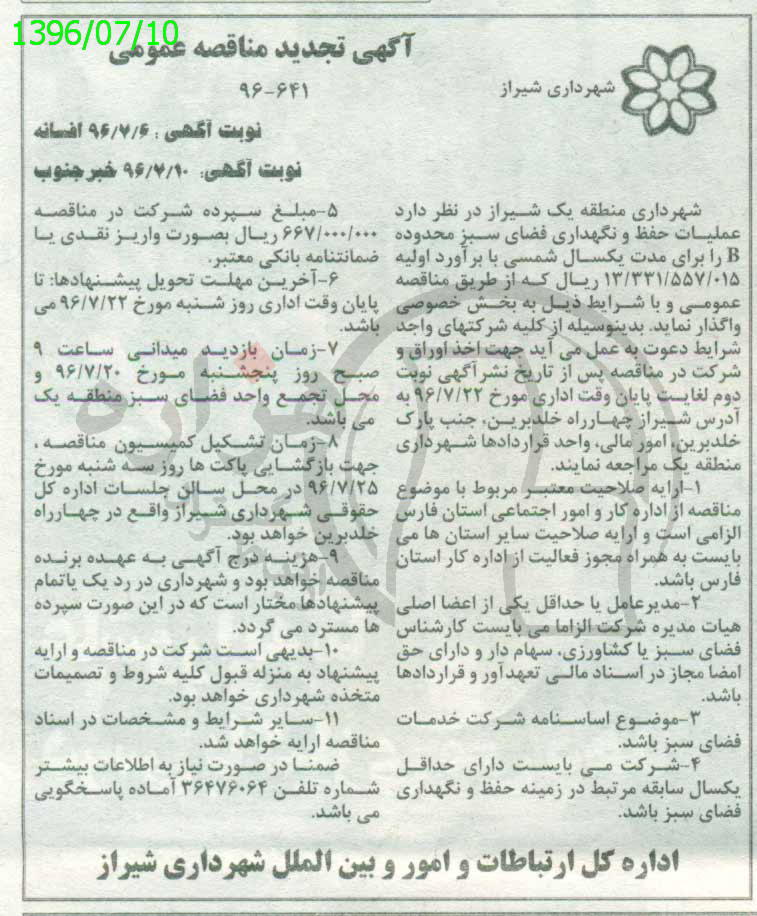 1396/07/10
آگهی تجدید مناقصه عمومی
شهرداری شیراز
۹۶-۶۴۱
نوبت آگهی : ۹۶/۷/۶ افسانه
نوبت آگهی: ۹۶/۷/۱۰ خبرجنوب
شهرداری منطقه یک شیراز در نظر دارد
عملیات حفظ و نگهداری فضای سبز محدوده
B را برای مدت یکسال شمسی با برآورد اولیه
۱۳/۳۳۱/۵۵۷/۰۱۵ ریال که از طریق مناقصه
عمومی و با شرایط ذیل به بخش خصوصی
واگذار نماید. بدینوسیله از کلیه شرکتهای واجد
شرایط دعوت به عمل می آید جهت اخذ اوراق و
شرکت در مناقصه پس از تاریخ نشر آگهی نوبت
دوم لغایت پایان وقت اداری مورخ ۹۶/۷/۲۲ به
آدرس شیراز چهارراه خلدبرین، جنب پارک
خلدبرین، امور مالی، واحد قراردادها شهرداری
منطقه یک مراجعه نمایند.
۱-ارایه صلاحیت معتبر مربوط با موضوع
مناقصه از اداره کار و امور اجتماعی استان فارس
الزامی است و ارایه صلاحیت سایر استان ها می
بایست به همراه مجوز فعالیت از اداره کار استان
فارس باشد.
۲-مدیرعامل یا حداقل یکی از اعضا اصلی
هیات مدیره شرکت الزاما می بایست کارشناس
فضای سبز یا کشاورزی، سهام دار و دارای حق
امضا مجاز در اسناد مالی تعهدآور و قراردادها
باشد.
۳-موضوع اساسنامه شرکت خدمات
فضای سبز باشد.
۴-شرکت می بایست دارای حداقل
یکسال سابقه مرتبط در زمینه حفظ و نگهداری
فضای سبز باشد.
۵-مبلغ سپرده شرکت در مناقصه
۶۶۷/۰۰۰/۰۰۰ ریال بصورت واریز نقدی یا
ضمانتنامه بانکی معتبر.
۶-آخرین مهلت تحویل پیشنهادها: تا
پایان وقت اداری روز شنبه مورخ ۹۶/۷/۲۲ می
باشد.
۷-زمان بازدید میدانی ساعت ۹
صبح روز پنجشنبه مورخ ۹۶/۷/۲۰ و
محل تجمع واحد فضای سبز منطقه یک
می باشد.
۸-زمان تشکیل کمیسیون مناقصه ،
جهت بازگشایی پاکت ها روز سه شنبه مورخ
۹۶/۷/۲۵ در محل سالن جلسات اداره کل
حقوقی شهرداری شیراز واقع در چهارراه
خلدبرین خواهد بود.
۹-هزینه درج آگهی به عهده برنده
مناقصه خواهد بود و شهرداری در رد یک یاتمام
پیشنهادها مختار است که در این صورت سپرده
ها مسترد می گردد.
۱۰-بدیهی است شرکت در مناقصه و ارایه
پیشنهاد به منزله قبول کلیه شروط و تصمیمات
متخذه شهرداری خواهد بود.
۱۱-سایر شرایط و مشخصات در اسناد
مناقصه ارایه خواهد شد.
ضمنا در صورت نیاز به اطلاعات بیشتر
شماره تلفن ۳۶۴۷۶۰۶۴ آماده پاسخگویی
می باشد.
اداره کل ارتباطات و امور و بین الملل شهرداری شیراز
هزاره